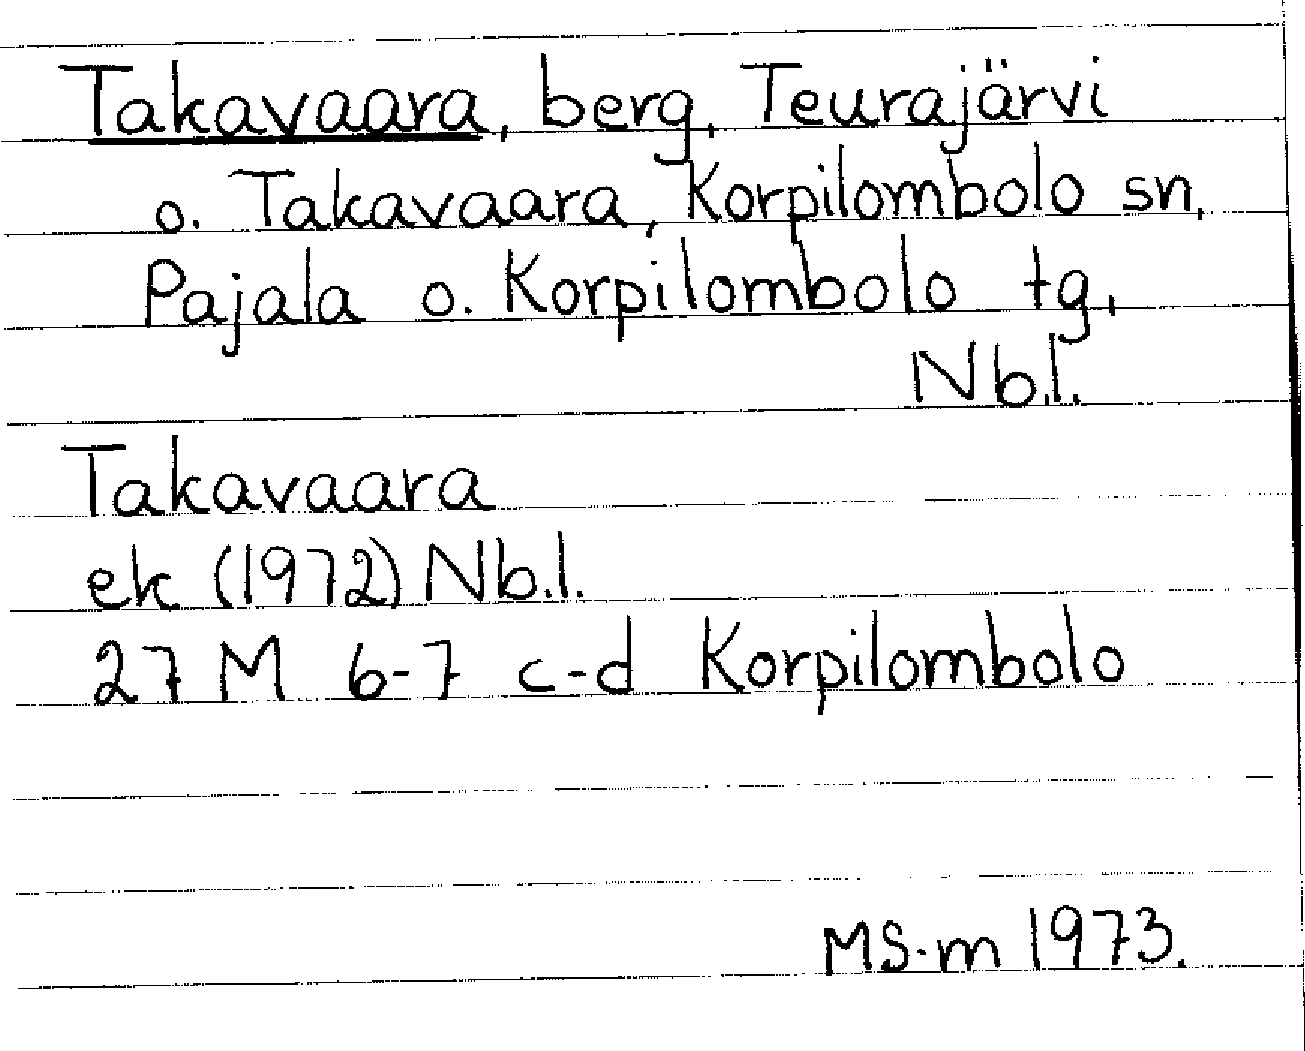 Takavaara, berg, Teurajärvi
o. Takavaara, Korpilombolo sn,
Pajala o. Korpilombolo tg,
Nb.l.
Takavaara
ek (1972) Nb.l.
27 M 6-7 c-d Korpilombolo
MS-m 1973.